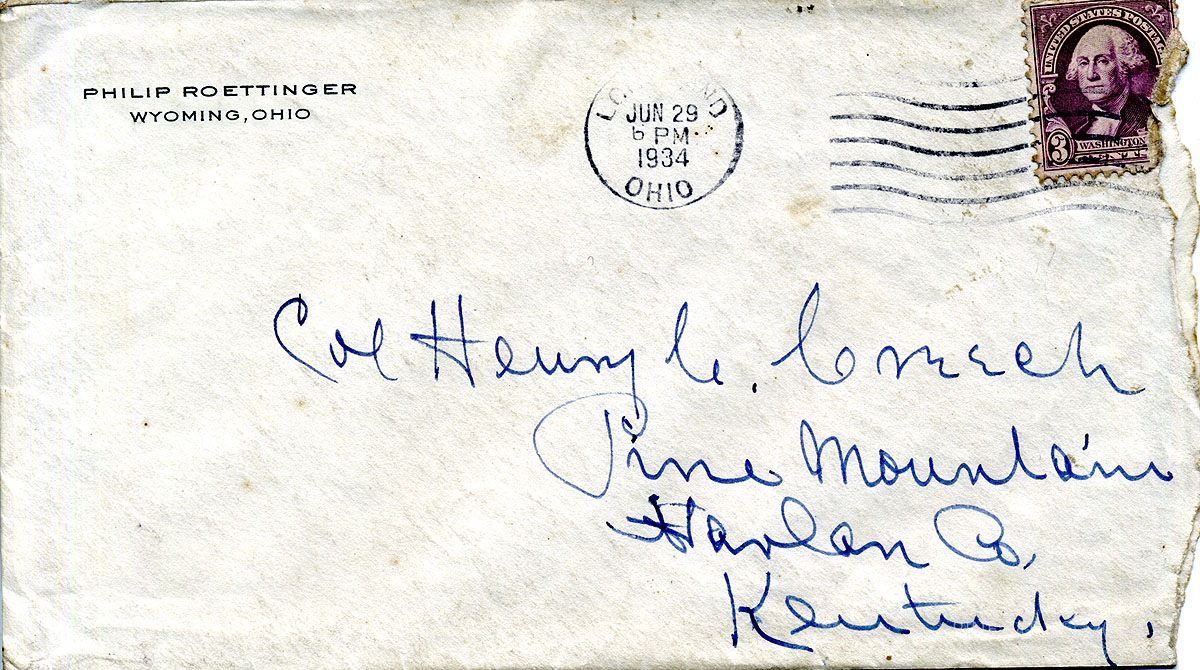 PHILIP ROETTINGER
WYOMING, OHIO
JUN 29
6 PM
1934
OHIO
UNITED STATES POSTAG
3 WASHINGTON
Col Henry C. Creech
Pine Mountain
Harlan Co.
Kentucky,